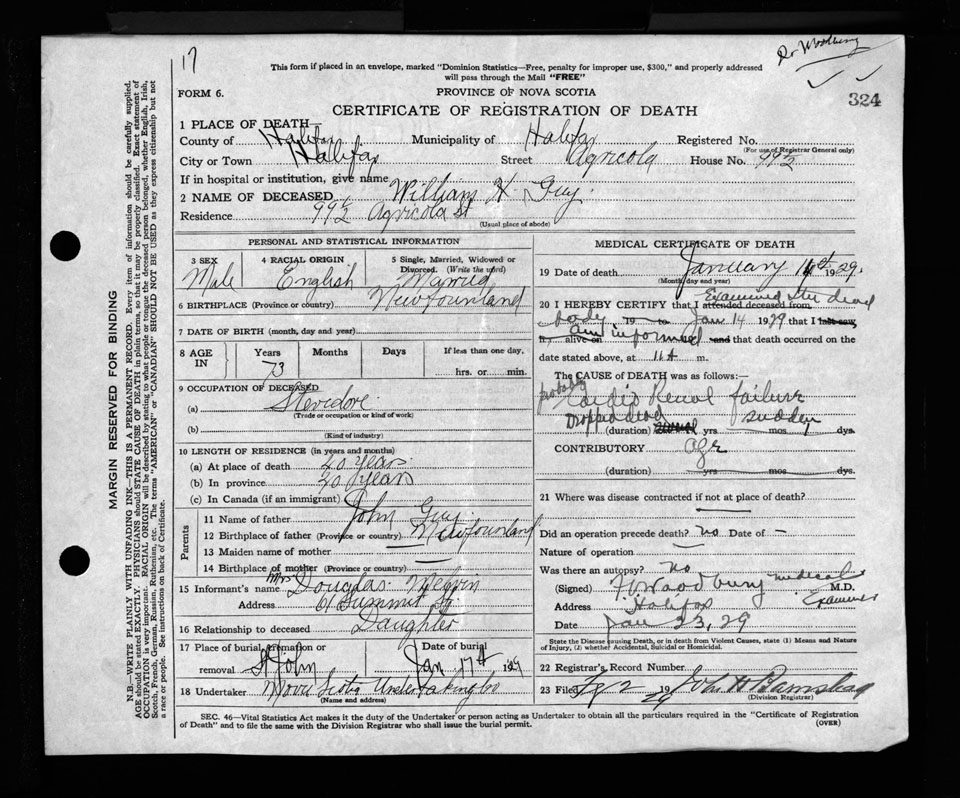 17
Dr Woodbury
This form if placed in an envelope, marked "Dominion Statistics—Free, penalty for improper use, $300," and properly addressed
will pass through the Mail "FREE"
FORM 6.
PROVINCE OF NOVA SCOTIA
324
CERTIFICATE OF REGISTRATION OF DEATH
1 PLACE OF DEATH—
County of Halifax Municipality of Halifax Registered No.
(For use of Registrar General only)
City or Town Halifax Street Agricola House No. 99½
If in hospital or institution, give name
2 NAME OF DECEASED William H. Guy.
Residence 99½ Agricola St
(Usual place of abode)
PERSONAL AND STATISTICAL INFORMATION
3 SEX 4 RACIAL ORIGIN 5 Single, Married, Widowed or
Divorced. (Write the word)
Male English Married
6 BIRTHPLACE (Province or country) Newfounland
7 DATE OF BIRTH (month, day and year)
8 AGE IN Years Months Days If less than one day.
73 hrs. or min.
9 OCCUPATION OF DECEASED
(a) Stevidore.
(Trade or occupation or kind of work)
(b)
(Kind of industry)
10 LENGTH OF RESIDENCE (in years and months)
(a) At place of death 40 years.
(b) In province 40 years
(c) In Canada (if an immigrant)
Parents
11 Name of father John Guy.
12 Birthplace of father (Province or country) Newfounland
13 Maiden name of mother —
14 Birthplace of mother (Province or country) —
15 Informant's name Mrs Douglas Melvin
Address 61 Summit St.
16 Relationship to deceased Daughter
17 Place of burial, cremation or Date of burial
removal St John Jan 17th, 1929
18 Undertaker Nova Scotia Undertaking Co
(Name and address)
MEDICAL CERTIFICATE OF DEATH
19 Date of death January 14th 1929.
(Month, day and year)
20 I HEREBY CERTIFY that I attended deceased from Examined the dead
body 19 to Jan 14 1929 that I last saw
alive on am informed and that death occurred on the
date stated above, at 11 A m.
The CAUSE OF DEATH was as follows:—
probably Cardio Renal failure
Dropped dead sudden
(duration) yrs mos dys.
CONTRIBUTORY age
(duration) yrs mos dys.
21 Where was disease contracted if not at place of death?
—
Did an operation precede death? no Date of —
Nature of operation —
Was there an autopsy? no
(Signed) F.V. Woodbury M.D.
medical Examiner
Address Halifax
Date Jan 23, 29
State the Disease causing Death, or in death from Violent Causes, state (1) Means and Nature
of Injury, (2) whether Accidental, Suicidal or Homicidal.
22 Registrar's Record Number
23 Filed 2 1929 John H Barnstead
(Division Registrar)
SEC. 46—Vital Statistics Act makes it the duty of the Undertaker or person acting as Undertaker to obtain all the particulars required in the "Certificate of Registration
of Death" and to file the same with the Division Registrar who shall issue the burial permit.
(OVER)
MARGIN RESERVED FOR BINDING
N.B.—WRITE PLAINLY WITH UNFADING INK—THIS IS A PERMANENT RECORD. Every item of information should be carefully supplied.
AGE should be stated EXACTLY. PHYSICIANS should STATE CAUSE OF DEATH in plain terms, so that it may be properly classified. Exact statement of
OCCUPATION is very important. RACIAL ORIGIN will be described by stating to what people or tongue the deceased person belonged, whether English, Irish,
Scotch, French, German, Russian, Ruthenian, etc. The terms "AMERICAN" or "CANADIAN" SHOULD NOT BE USED as they express citizenship but not
a race or people. See instructions on back of Certificate.